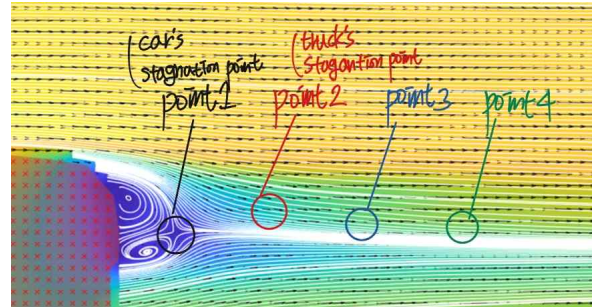 car's
stagnation point
point 1
truck's
stagantion point
point 2
point 3
point 4